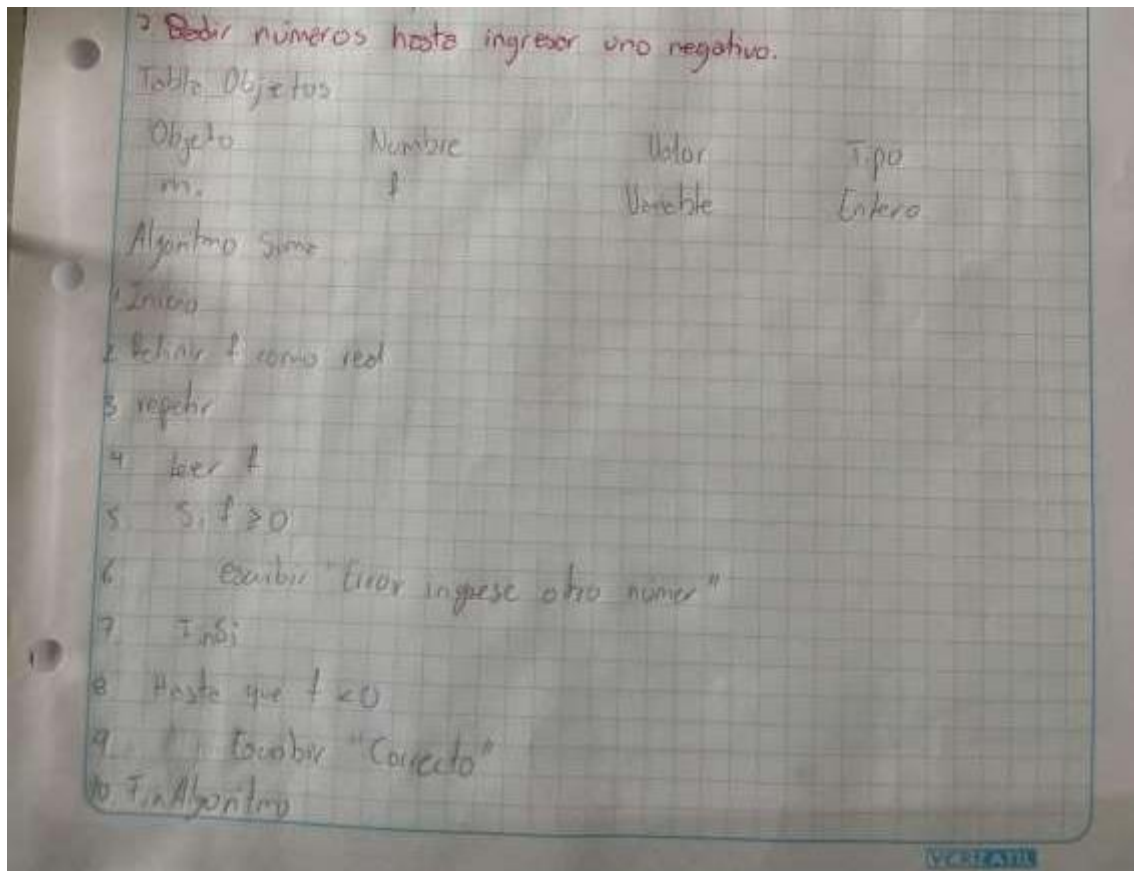 ? Pedir números hasta ingresar uno negativo.
Tabla Objetos
Objeto Nombre Valor Tipo
m. f Variable Entero
Algoritmo Sime
1 Inicio
2 Definir f como real
3 repetir
4 leer f
5 Si f ≥ 0
6 escribir "Error ingrese otro númer"
7 FinSi
8 Hasta que f < 0
9 Escribir "Correcto"
10 FinAlgoritmo